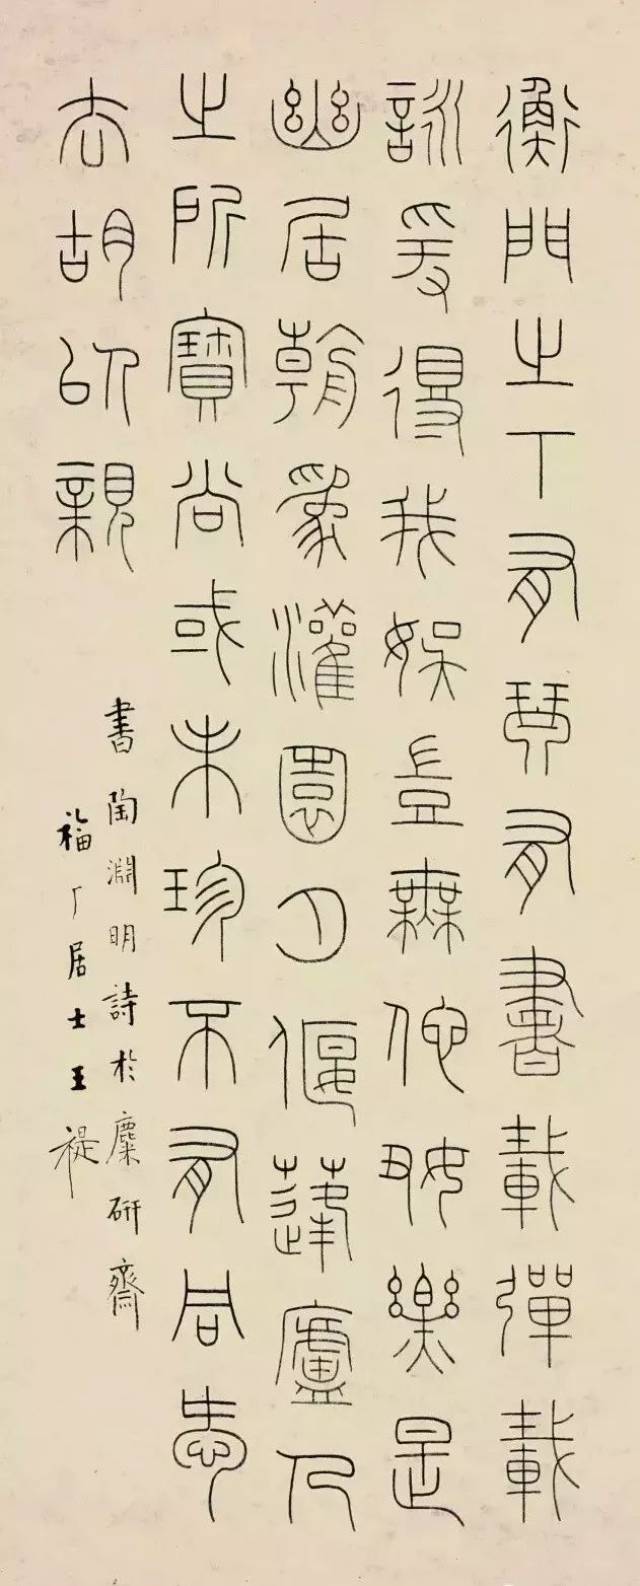 衡門之下有琴有書載彈載
詠爰得我娛豈無他好樂是
幽居朝為灌園夕偃蓬廬人
之所寶尚或未珍不有同愛
云胡以親
書陶淵明詩於麋研齋
福厂居士王禔